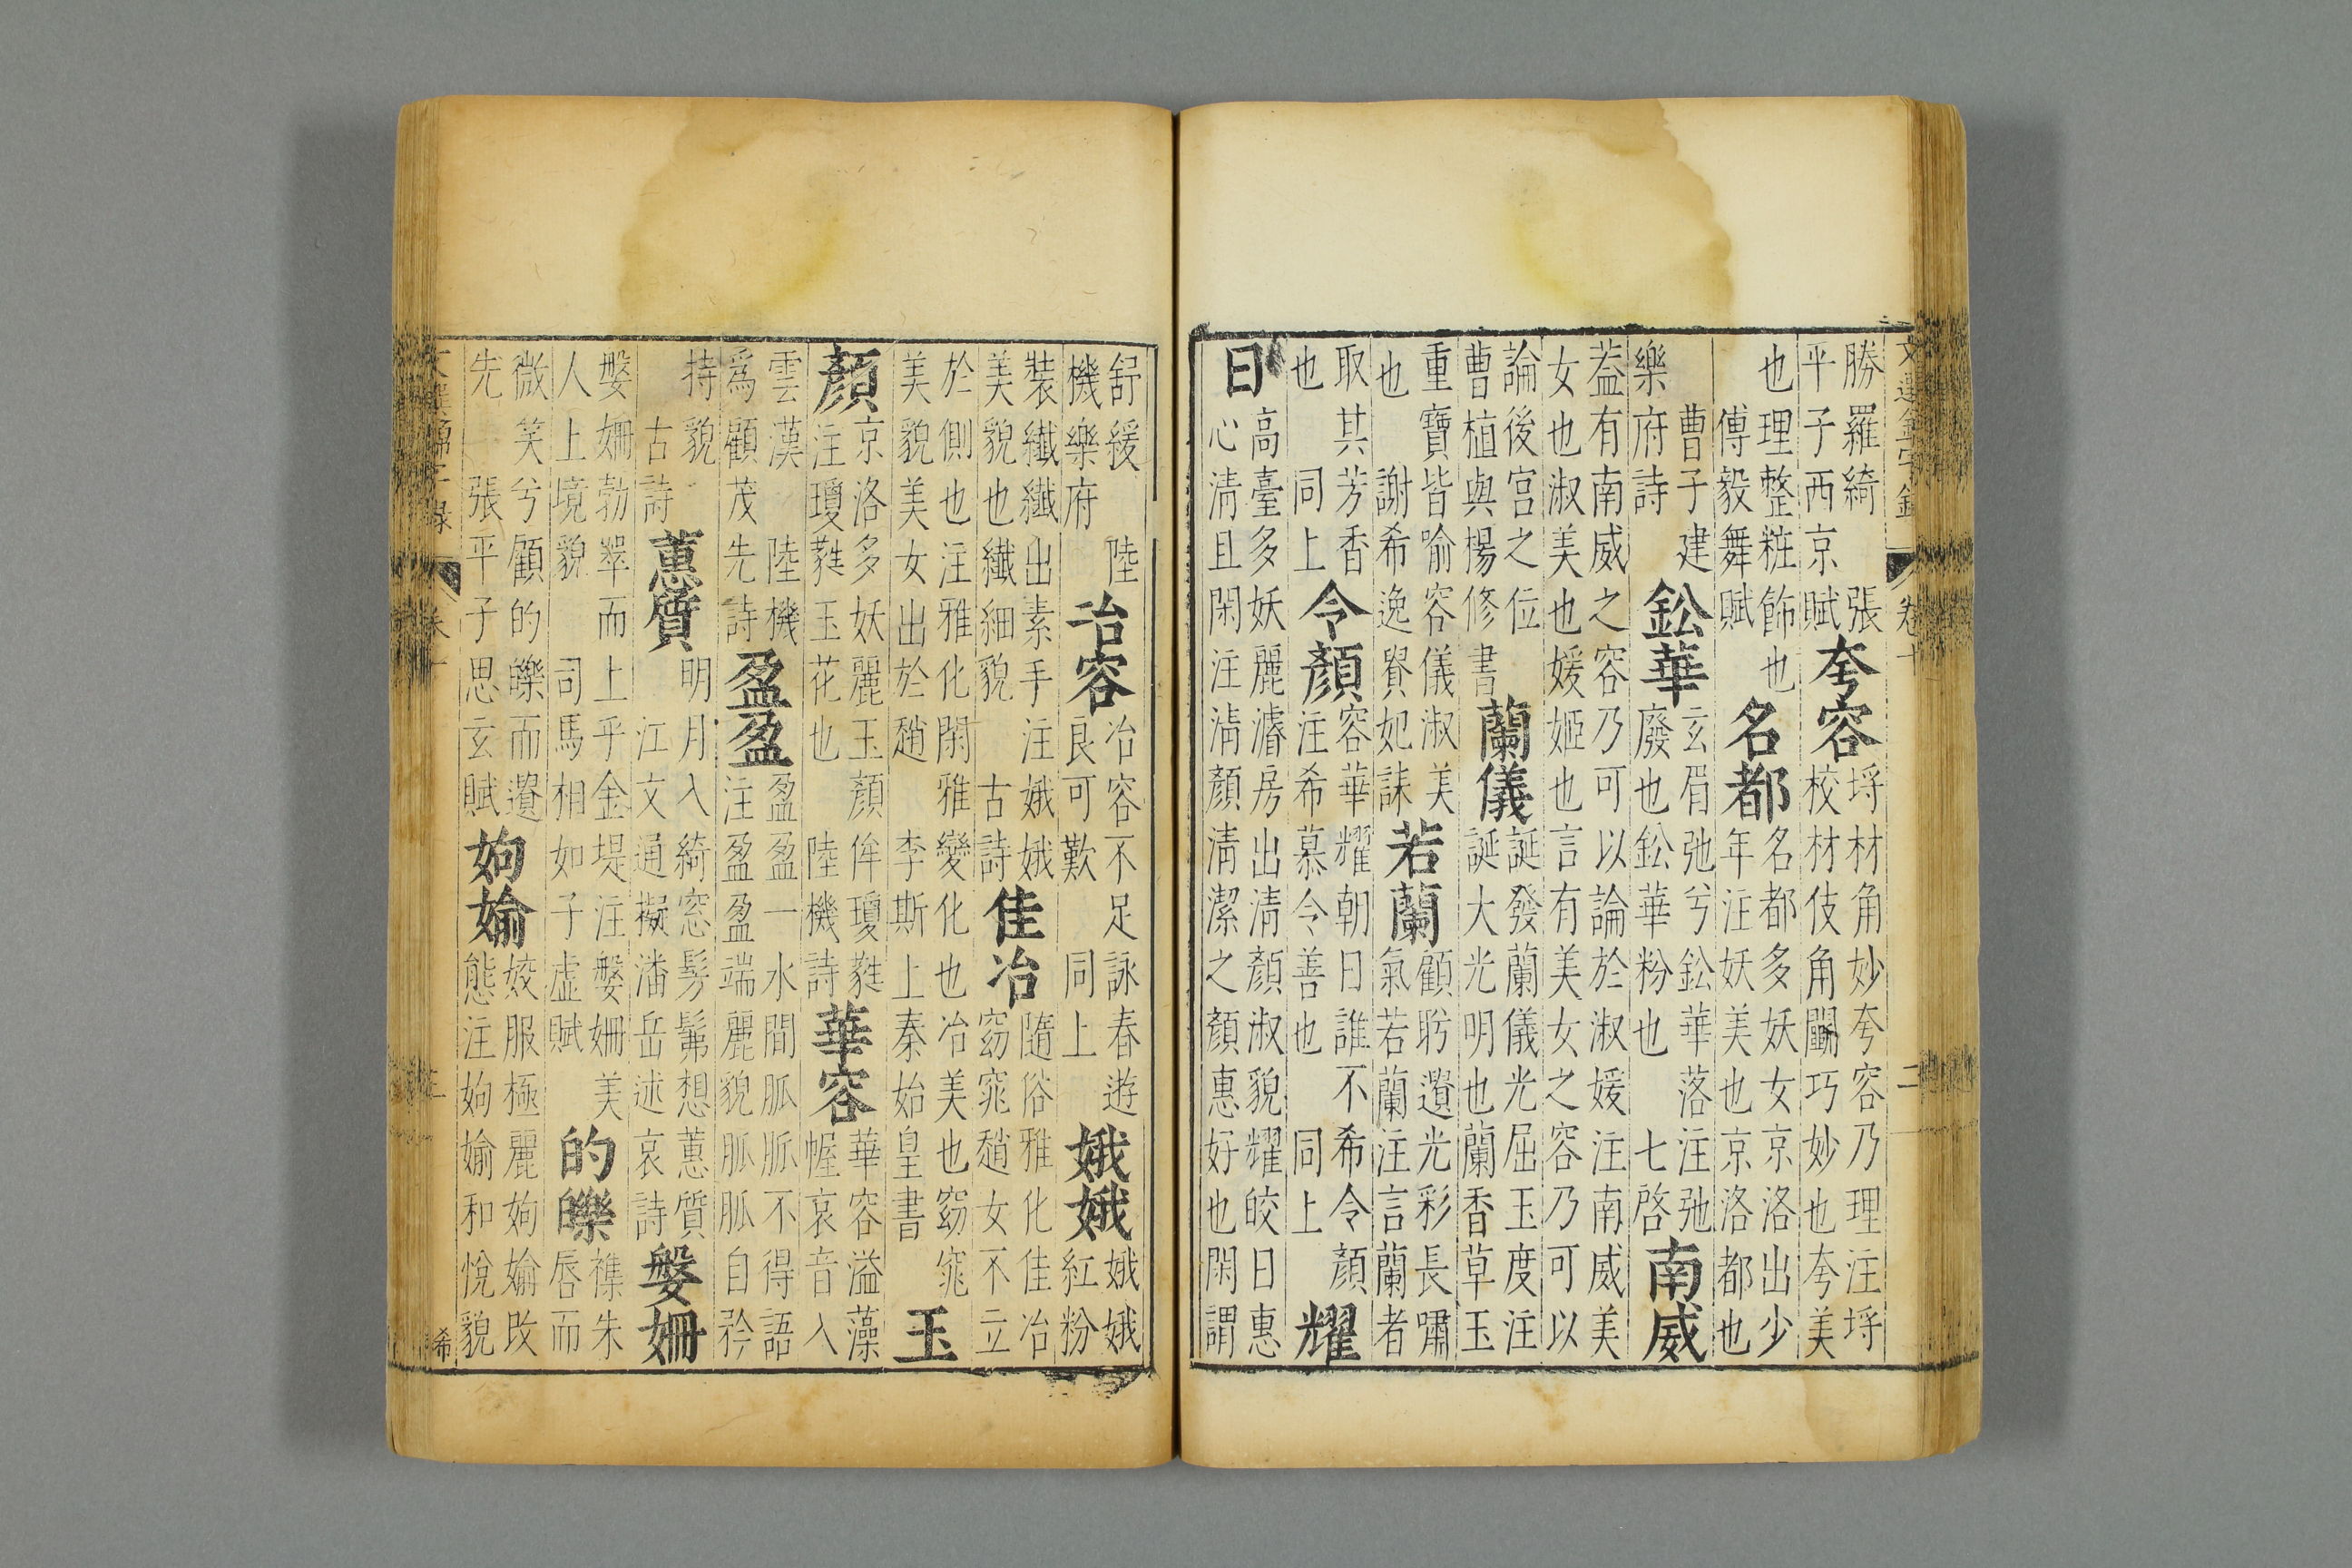 文選錦字錄 卷十 二
勝羅綺 張
平子西京賦
夸容
埒材角妙夸容乃理注埒
校材伎角鬭巧妙也夸美
也理整粧飾也
傅毅舞賦
名都
名都多妖女京洛出少
年注妖美也京洛都也
曹子建
樂府詩
鈆華
玄眉弛兮鈆華落注弛
廢也鈆華粉也 七啓
南威
葢有南威之容乃可以論於淑媛注南威美
女也淑美也媛姬也言有美女之容乃可以
論後宫之位
曹植與楊修書
蘭儀
誕發蘭儀光屈玉度注
誕大光明也蘭香草玉
重寶皆喻容儀淑美
也 謝希逸貴妃誄
若蘭
顧盻遺光彩長嘯
氣若蘭注言蘭者
取其芳香
也 同上
令顏
容華耀朝日誰不希令顏
注希慕令善也 同上
耀
日
高臺多妖麗濬房出清顏淑貌耀皎日惠
心清且閑注清顏清潔之顏惠好也閑謂
舒緩 陸
機樂府
冶容
冶容不足詠春遊
良可歎 同上
娥娥
娥娥
紅粉
裝纖纖出素手注娥娥
美貌也纖纖細貌 古詩
佳冶
隨俗雅化佳冶
窈窕趙女不立
於側也注雅化閑雅變化也冶美也窈窕
美貌美女出於趙 李斯上秦始皇書
玉
顏
京洛多妖麗玉顏侔瓊蕤
注瓊蕤玉花也 陸機詩
華容
華容溢藻
幄哀音入
雲漢 陸機
爲顧茂先詩
盈盈
盈盈一水間脈脈不得語
注盈盈端麗貌脈脈自矜
持貌
古詩
蕙質
明月入綺窓髣髴想蕙質
江文通擬潘岳述哀詩
媻姍
媻姍勃翠而上乎金堤注媻姍美
人上境貌 司馬相如子虛賦
的皪
襍朱
唇而
微笑兮顧的皪而遺
先 張平子思玄賦
姁媮
姣服極麗姁媮致
態注姁媮和悅貌
希